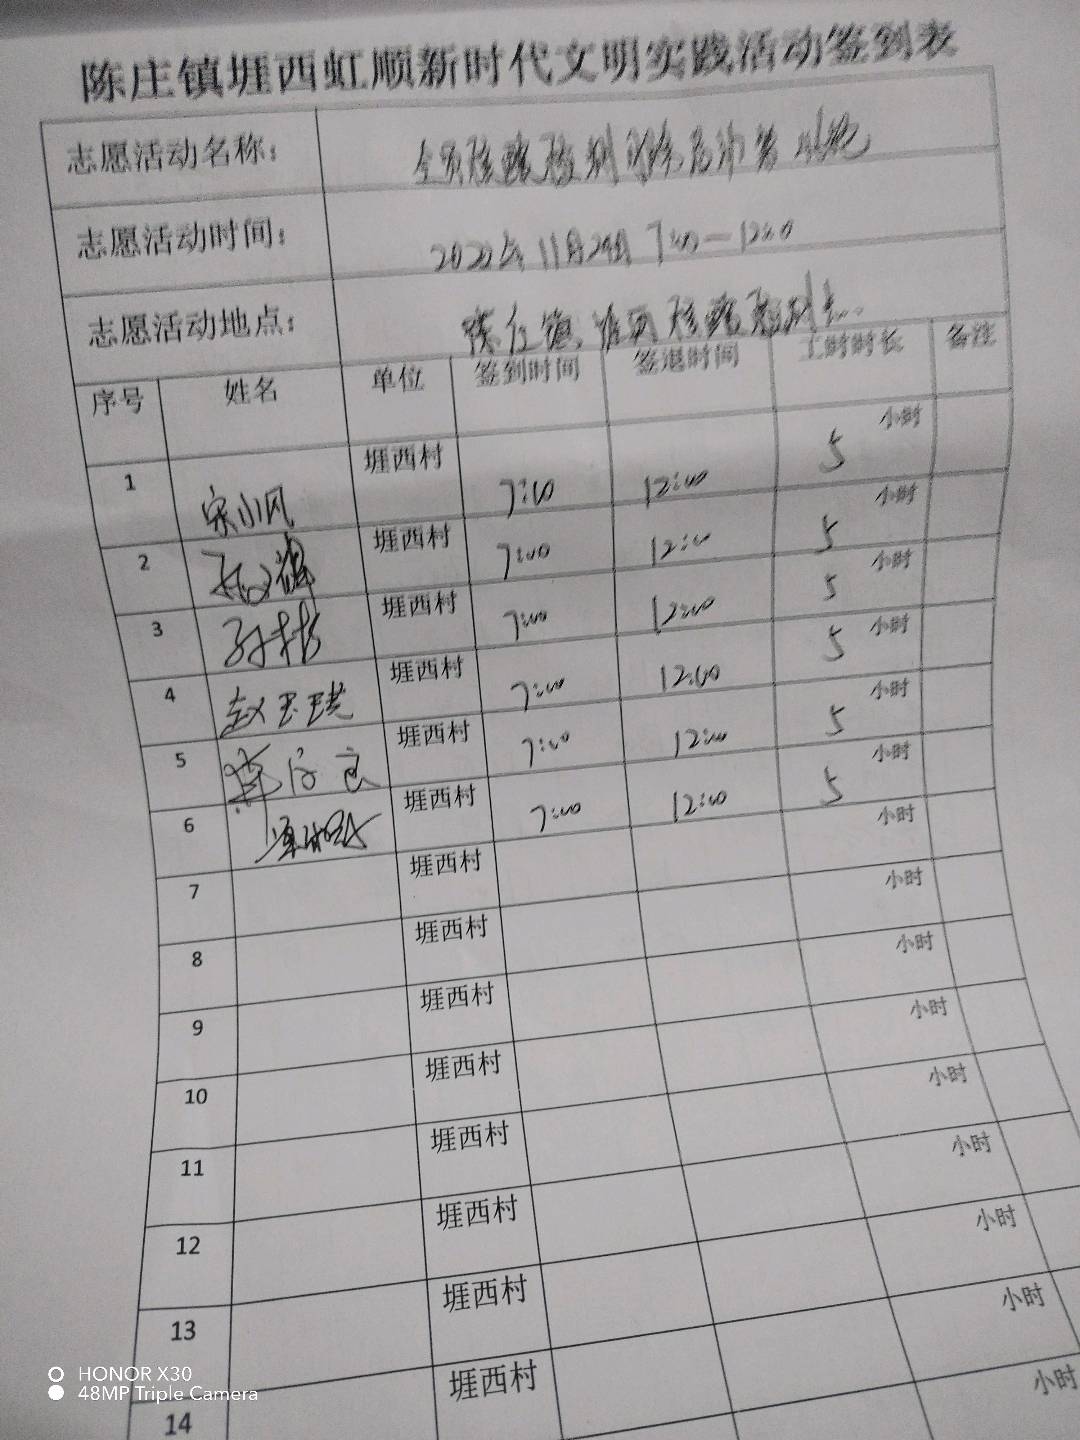 陈庄镇堐西虹顺新时代文明实践活动签到表
志愿活动名称： 全员核酸检测
志愿活动时间： 2022年11月24日 7:00—12:00
志愿活动地点： 陈庄镇堐西核酸检测点
序号 姓名 单位 签到时间 签退时间 工时时长 备注
1 宋小风 堐西村 7:00 12:00 5 小时
2 堐西村 7:00 12:00 5 小时
3 堐西村 7:00 12:00 5 小时
4 赵玉 堐西村 7:00 12:00 5 小时
5 堐西村 7:00 12:00 5 小时
6 堐西村 7:00 12:00 5 小时
7 堐西村 小时
8 堐西村 小时
9 堐西村 小时
10 堐西村 小时
11 堐西村 小时
12 堐西村 小时
13 堐西村 小时
14 堐西村 小时
HONOR X30
48MP Triple Camera